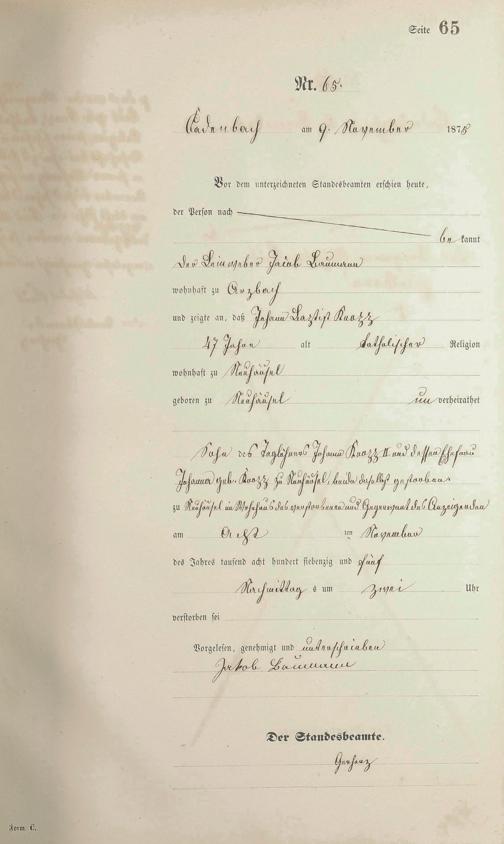 Seite 65
Nr. 65.
Cadenbach am 9. November 1875
Vor dem unterzeichneten Standesbeamten erschien heute,
der Person nach
be kannt
der Leinweber Jacob Baumann
wohnhaft zu Arzbach
und zeigte an, daß Johann Baptist Knopp
47 Jahre alt katholischer Religion
wohnhaft zu Neuhäusel
geboren zu Neuhäusel un verheirathet
Sohn des Taglöhners Johann Knopp II und dessen Ehefrau
Johanna geb. Knopp zu Neuhäusel, beide daselbst gestorben
zu Neuhäusel im Wohnhaus des verstorbenen und Gegenwart des Anzeigenden
am Acht ten November
des Jahres tausend acht hundert siebenzig und fünf
Nachmittag s um zwei Uhr
verstorben sei
Vorgelesen, genehmigt und unterschrieben
Jakob Baumann
Der Standesbeamte.
Form C.